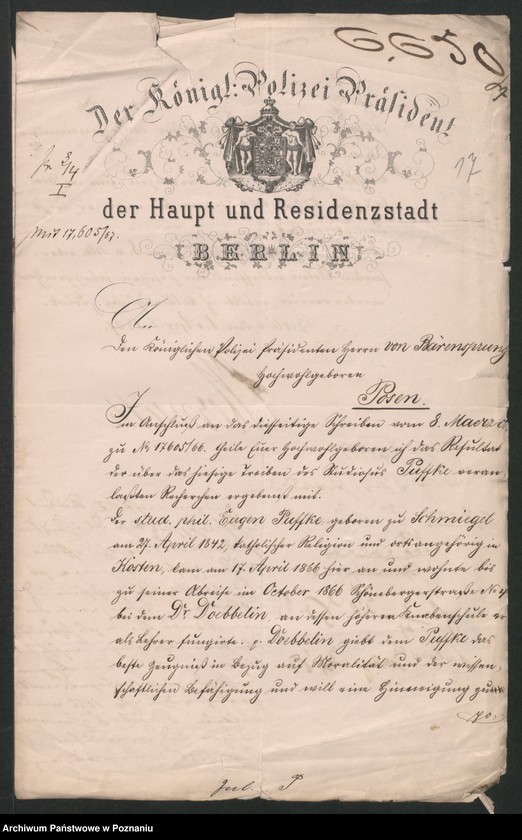 6,650
Der Königl: Polizei Präsident
17
der Haupt und Residenzstadt
mit 17,605/67.
BERLIN
An
den Königlichen Polizei Präsidenten Herrn von Bärensprung
Hochwohlgeboren
Posen.
Im Anschluß an das diesseitige Schreiben vom 8. Maerz
zu No 17605/66. theile Euer Hochwohlgeboren ich das Resultat
der über das hiesige Treiben des Studiosus Puffke veran
laßten Recherchen ergebenst mit.
Der stud. phil. Eugen Puffke, geboren zu Schmiegel
am 27. April 1842, katholischer Religion und ortsangehörig in
Kosten, kam am 17. April 1866 hier an und wohnte bis
zu seiner Abreise im October 1866 Schönebergerstraße No
bei dem Dr Doebbelin, an dessen höherer Knabenschule er
als Lehrer fungirte. p. Doebbelin giebt dem Puffke das
beste Zeugniß in Bezug auf Moralität und der wissen-
schaftlichen Befähigung und will eine Hinneigung zum
po.
P
Archiwum Państwowe w Poznaniu